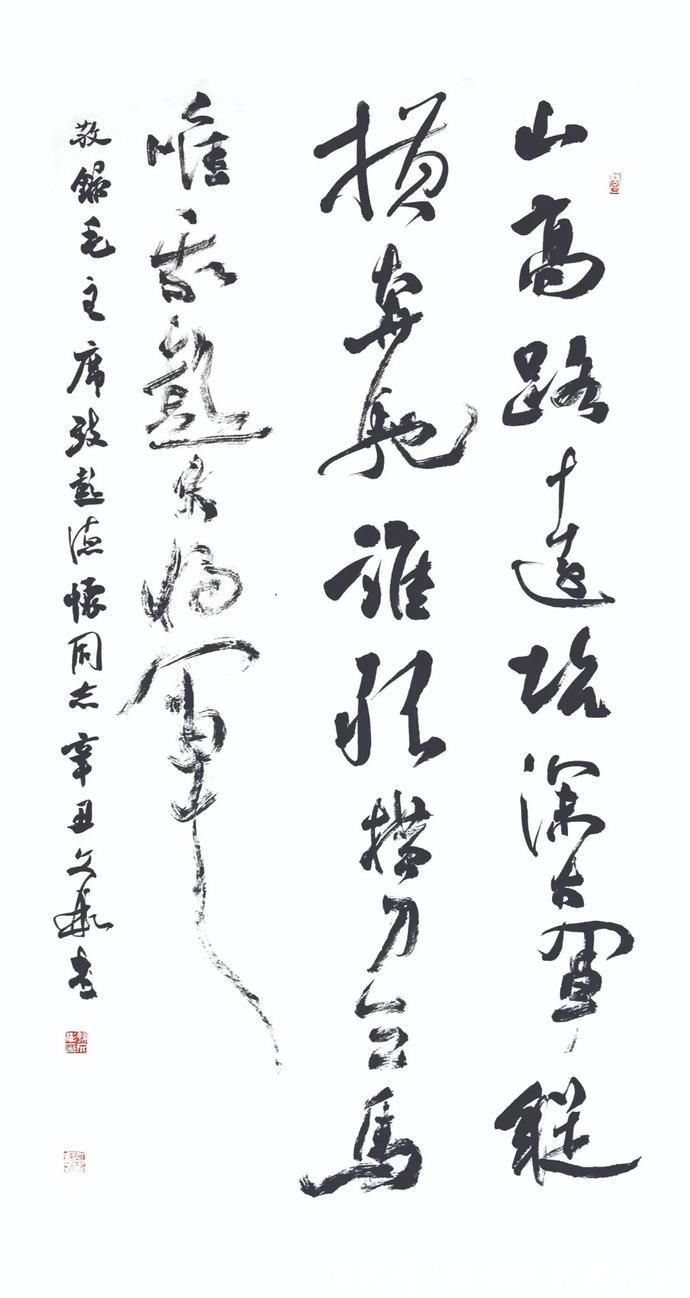 山高路遠坑深大軍縱
横奔馳誰敢横刀立馬
唯我彭大將軍
敬錄毛主席致彭德懷同志辛丑文書